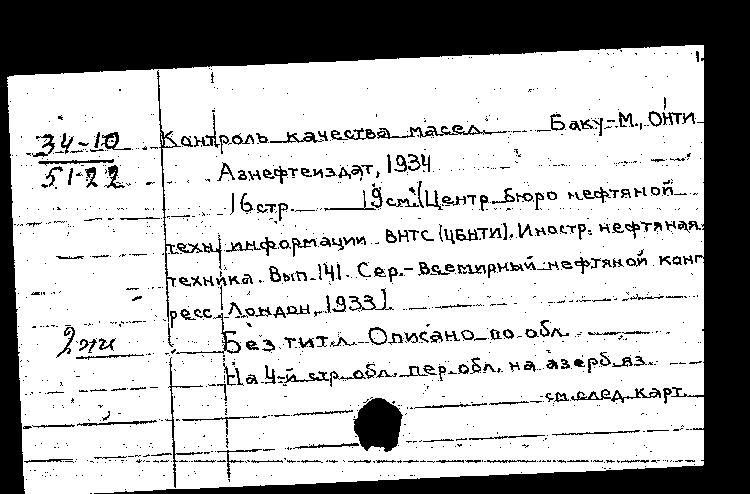 34-10
51-22
Контроль качества масел. Баку-М., ОНТИ
Азнефтеиздат, 1934
16стр. 19см. (Центр. Бюро нефтяной
техн. информации ВНТС (ЦБНТИ). Иностр. нефтяная
техника. Вып. 141. Сер.-Всемирный нефтяной конг
ресс. Лондон, 1933).
2 эк
Без тит.л. Описано по обл.
На 4-й стр. обл. пер. обл. на азерб. яз.
см.след. карт.